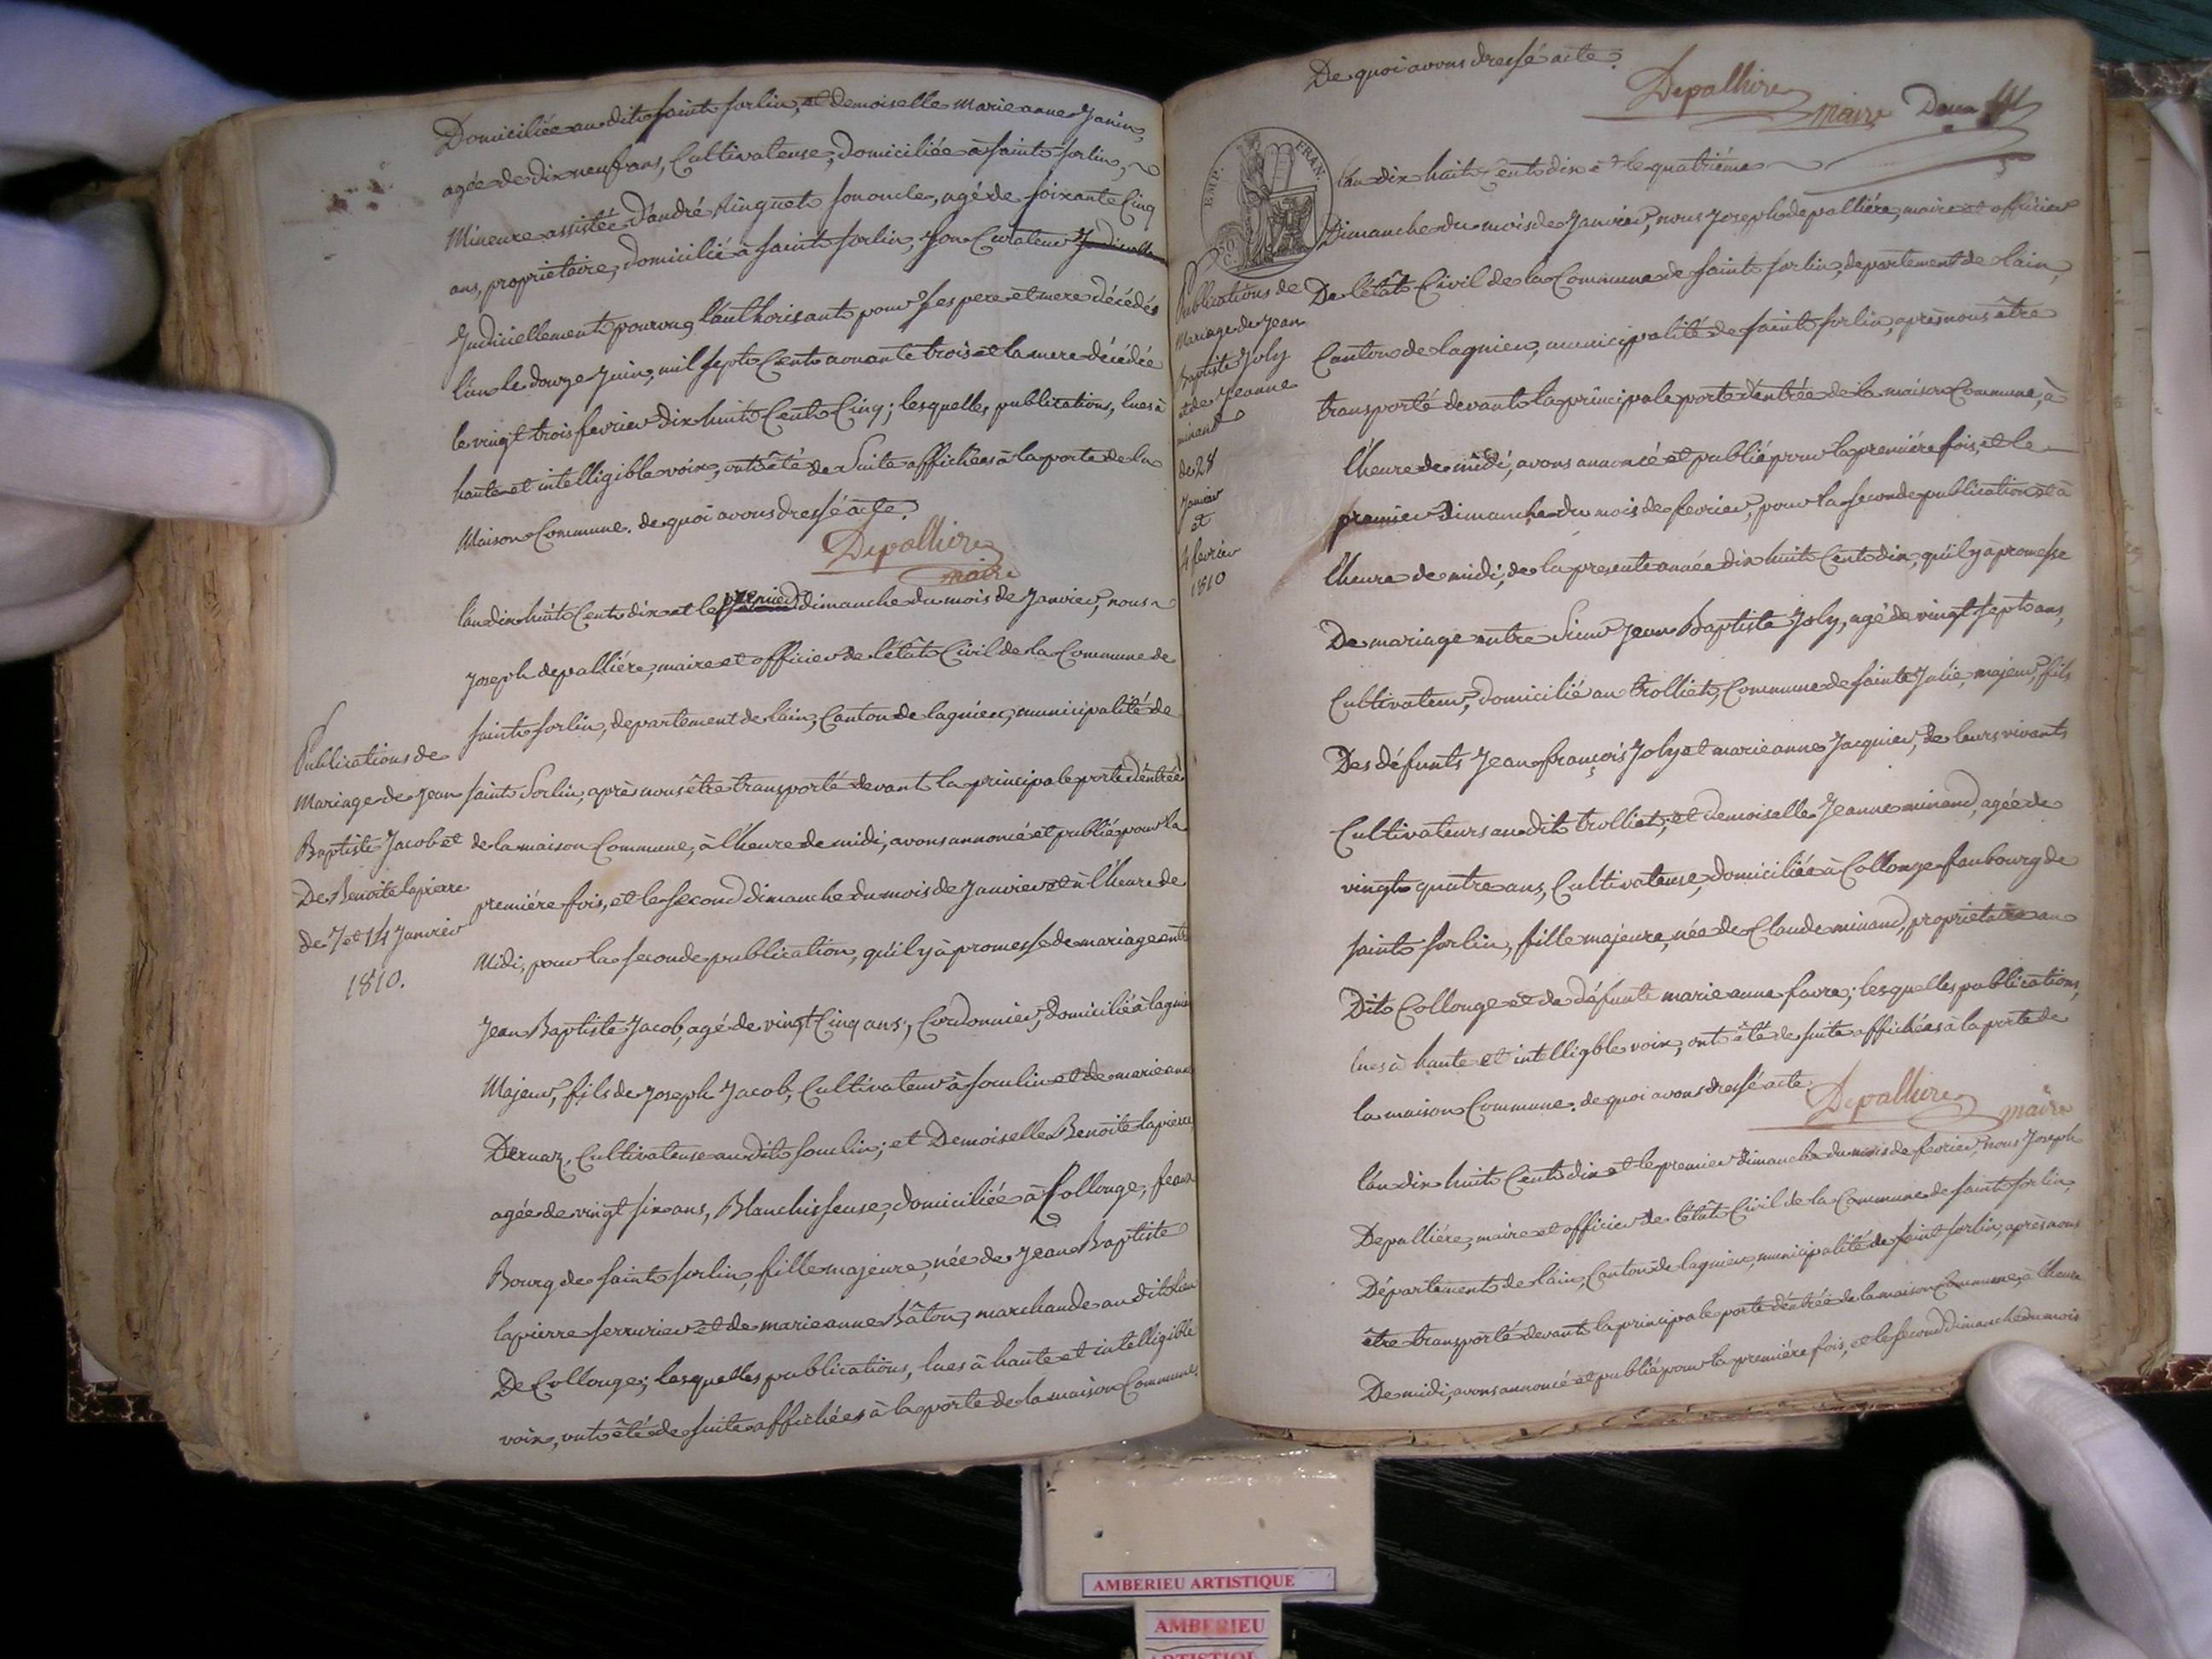 Domiciliée au dit saint sorlin, et demoiselle marie anne Janin,
agée de dix neuf ans, Cultivateuse, domiciliée à saint sorlin,
Mineure assistée d'andré Ringuet son oncle, agé de soixante Cinq
ans, proprietaire, domicilié à saint sorlin, son Curateur
Judiciellement pourvu, l'authorisant pour ses pere et mere décédés
l'un le douze Juin, mil sept Cent nonante trois et la mere décédée
le vingt trois fevrier dix huit Cent Cinq; lesquelles publications, lues à
haute et intelligible voix, ont été de suite affichées à la porte de la
Maison Commune. de quoi avons dressé acte.
Depalliere
maire
Publications de
Mariage de Jean
Baptiste Jacob et
De Benoite lapierre
de 7 et 14 Janvier
1810.
l'an dix huit Cent dix et le premier dimanche du mois de Janvier, nous
Joseph depalliére, maire et officier de l'état Civil de la Commune de
saint sorlin, departement de l'ain, Canton de lagnieu, municipalité de
saint Sorlin, après nous être transporté devant la principale porte d'entrée
de la maison Commune, à l'heure de midi, avons annoncé et publié pour la
premiére fois, et le second dimanche du mois de Janvier et à l'heure de
Midi, pour la seconde publication, qu'il y à promesse de mariage entre
Jean Baptiste Jacob, agé de vingt Cinq ans, Cordonnier, domicilié à lagnieu
Majeur, fils de Joseph Jacob, Cultivateur à souclin et de marie anne
Dernaz, Cultivateuse au dit souclin; et Demoiselle Benoite lapierre
agée de vingt six ans, Blanchisseuse, domiciliée à Collonge, faux
Bourg de saint sorlin, fille majeure, née de Jean Baptiste
lapierre serrurier et de marie anne Bâton, marchande au dit lieu
De Collonge; lesquelles publications, lues à haute et intelligible
voix, ont été de suite affichées à la porte de la maison Commune
De quoi avons dressé acte.
Depalliere
maire
EMP. FRAN.
Publications de
Mariage de Jean
Baptiste Joly
et de Jeanne
minand
de 28
Janvier
et
4 fevrier
1810
l'an dix huit Cent dix et le quatriéme
Dimanche du mois de Janvier, nous Joseph depalliére, maire et officier
De l'état Civil de la Commune de saint sorlin, departement de l'ain,
Canton de lagnieu, municipalité de saint sorlin, après nous être
transporté devant la principale porte d'entrée de la maison Commune, à
l'heure de midi, avons annoncé et publié pour la premiére fois, et le
premier dimanche du mois de fevrier, pour la seconde publication et à
l'heure de midi, de la presente année dix huit Cent dix, qu'il y à promesse
De mariage entre Sieur Jean Baptiste Joly, agé de vingt sept ans,
Cultivateur, domicilié au trolliet, Commune de sainte Julie, majeur, fils
Des défunts Jean françois Joly et marie anne Jacquier, de leurs vivants
Cultivateurs au dit trolliet, et demoiselle Jeanne minand, agée de
vingt quatre ans, Cultivateuse, domiciliée à Collonge faubourg de
saint sorlin, fille majeure, née de Claude minand, proprietaire au
Dit Collonge et de défunte marie anne favre; lesquelles publications,
lues à haute et intelligble voix, ont été de suite affichées à la porte de
la maison Commune. de quoi avons dressé acte
Depalliere maire
l'an dix huit Cent dix et le premier dimanche du mois de fevrier, nous Joseph
Depalliére, maire et officier de l'état Civil de la Commune de saint sorlin,
Département de l'ain, Canton de lagnieu, municipalité de saint sorlin, après nous
être transporté devant la principale porte d'entrée de la maison Commune, à l'heure
De midi, avons annoncé et publié pour la premiére fois, et le second dimanche du mois
AMBERIEU ARTISTIQUE
AMBERIEU
ARTISTIQUE